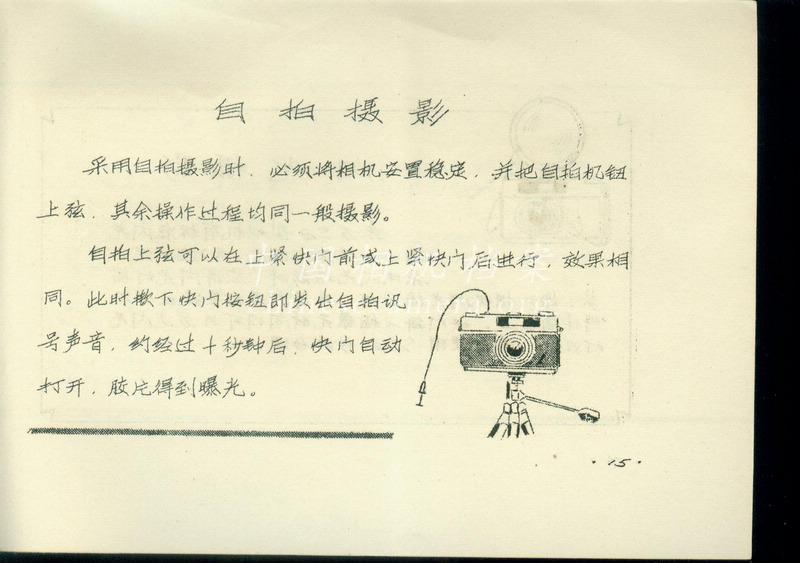 自拍摄影
采用自拍摄影时，必须将相机安置稳定，并把自拍机钮
上弦，其余操作过程均同一般摄影。
自拍上弦可以在上紧快门前或上紧快门后进行，效果相
同。此时揿下快门按钮即发出自拍讯
号声音，约经过十秒钟后，快门自动
打开，胶片得到曝光。
·15·